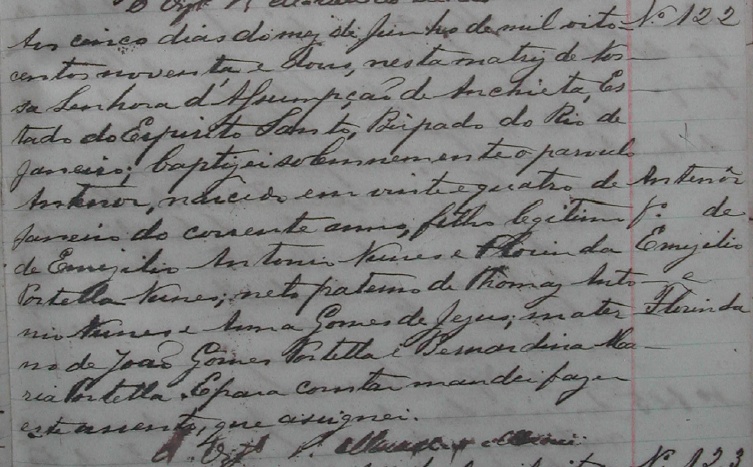 Nº 122
Aos cinco dias do mez de Junho de mil oito-
centos noventa e dous, nesta matriz de Nos-
sa Senhora d'Assumpção de Anchieta, Es-
tado do Espirito Santo, Bispado do Rio de
Janeiro; baptizei solemnemente o parvulo
Antenor, nascido em vinte e quatro de
Janeiro do corrente anno, filho legitimo
de Emezilio Antonio Nunes e Florinda
Portella Nunes; neto paterno de Thomaz Anto-
nio Nunes e Anna Gomes de Jezus; mater-
no de João Gomes Portella e Bernardina Ma-
ria Portella. E para constar mandei fazer
este assento, que assignei.
Antenôr
fº de
Emezilio
e
Florinda
Nº 123